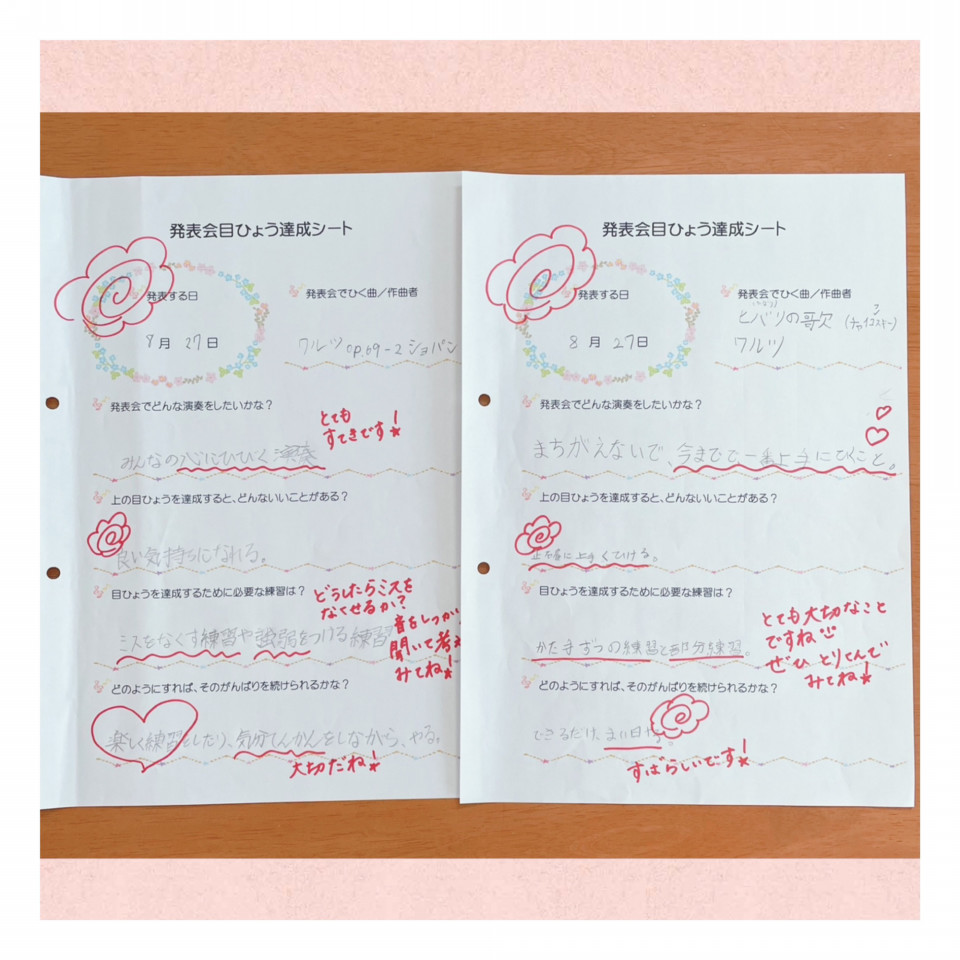 発表会目ひょう達成シート
発表する日
8月27日
発表会でひく曲/作曲者
ワルツ op.69-2 ショパン
発表会でどんな演奏をしたいかな?
とても
すてきです!
みんなの心にひびく演奏
上の目ひょうを達成すると、どんないいことがある?
良い気持ちになれる。
目ひょうを達成するために必要な練習は?
どうしたらミスを
なくせるか?
音をしっかり
聞いて考え
みてね!
ミスをなくす練習や強弱をつける練習
どのようにすれば、そのがんばりを続けられるかな?
楽しく練習をしたり、気分てんかんをしながら、やる。
大切だね!
発表会目ひょう達成シート
発表する日
8月27日
発表会でひく曲/作曲者
ヒバリの歌 (チャイコフスキー)
ワルツ
発表会でどんな演奏をしたいかな?
まちがえないで、今までで一番上手にひくこと。
上の目ひょうを達成すると、どんないいことがある?
に上手くていける。
目ひょうを達成するために必要な練習は?
とても大切なこと
ですね
ぜひとりくんで
みてね!
かた手ずつの練習と部分練習。
どのようにすれば、そのがんばりを続けられるかな?
できるだけ、まい日やる。
すばらしいです!